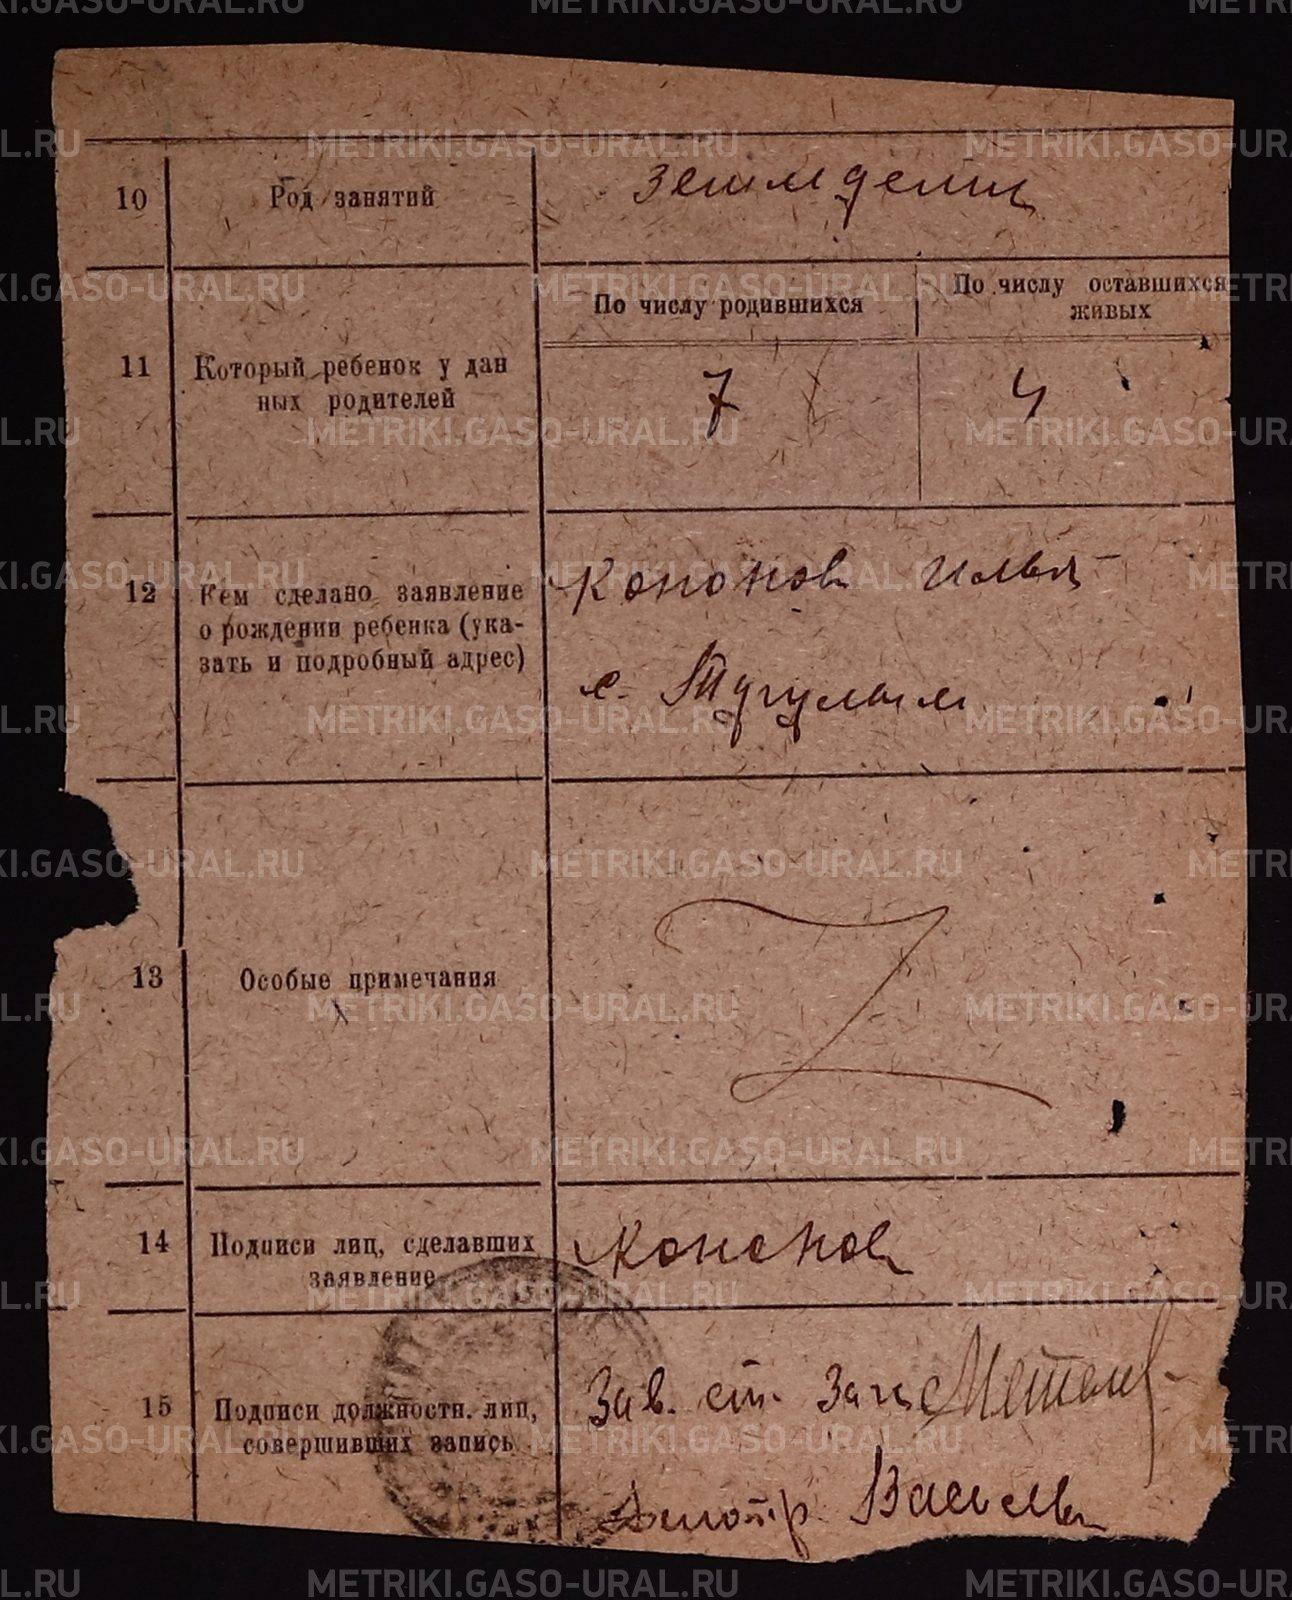 10
Род занятий
земледелиц
11
Который ребенок у дан
ных родителей
По числу родившихся
По числу оставшихся
живых
7
4
12
Кем сделано заявление
о рождении ребенка (ука-
зать и подробный адрес)
Кононов Илья
с. Тугулым
13
Особые примечания
14
Подписи лиц, сделавших
заявление
Кононов
15
Подписи должностн. лиц,
совершивших запись
Зав. ст. Загс
Делопр. Васильев
METRIKI.GASO-URAL.RU